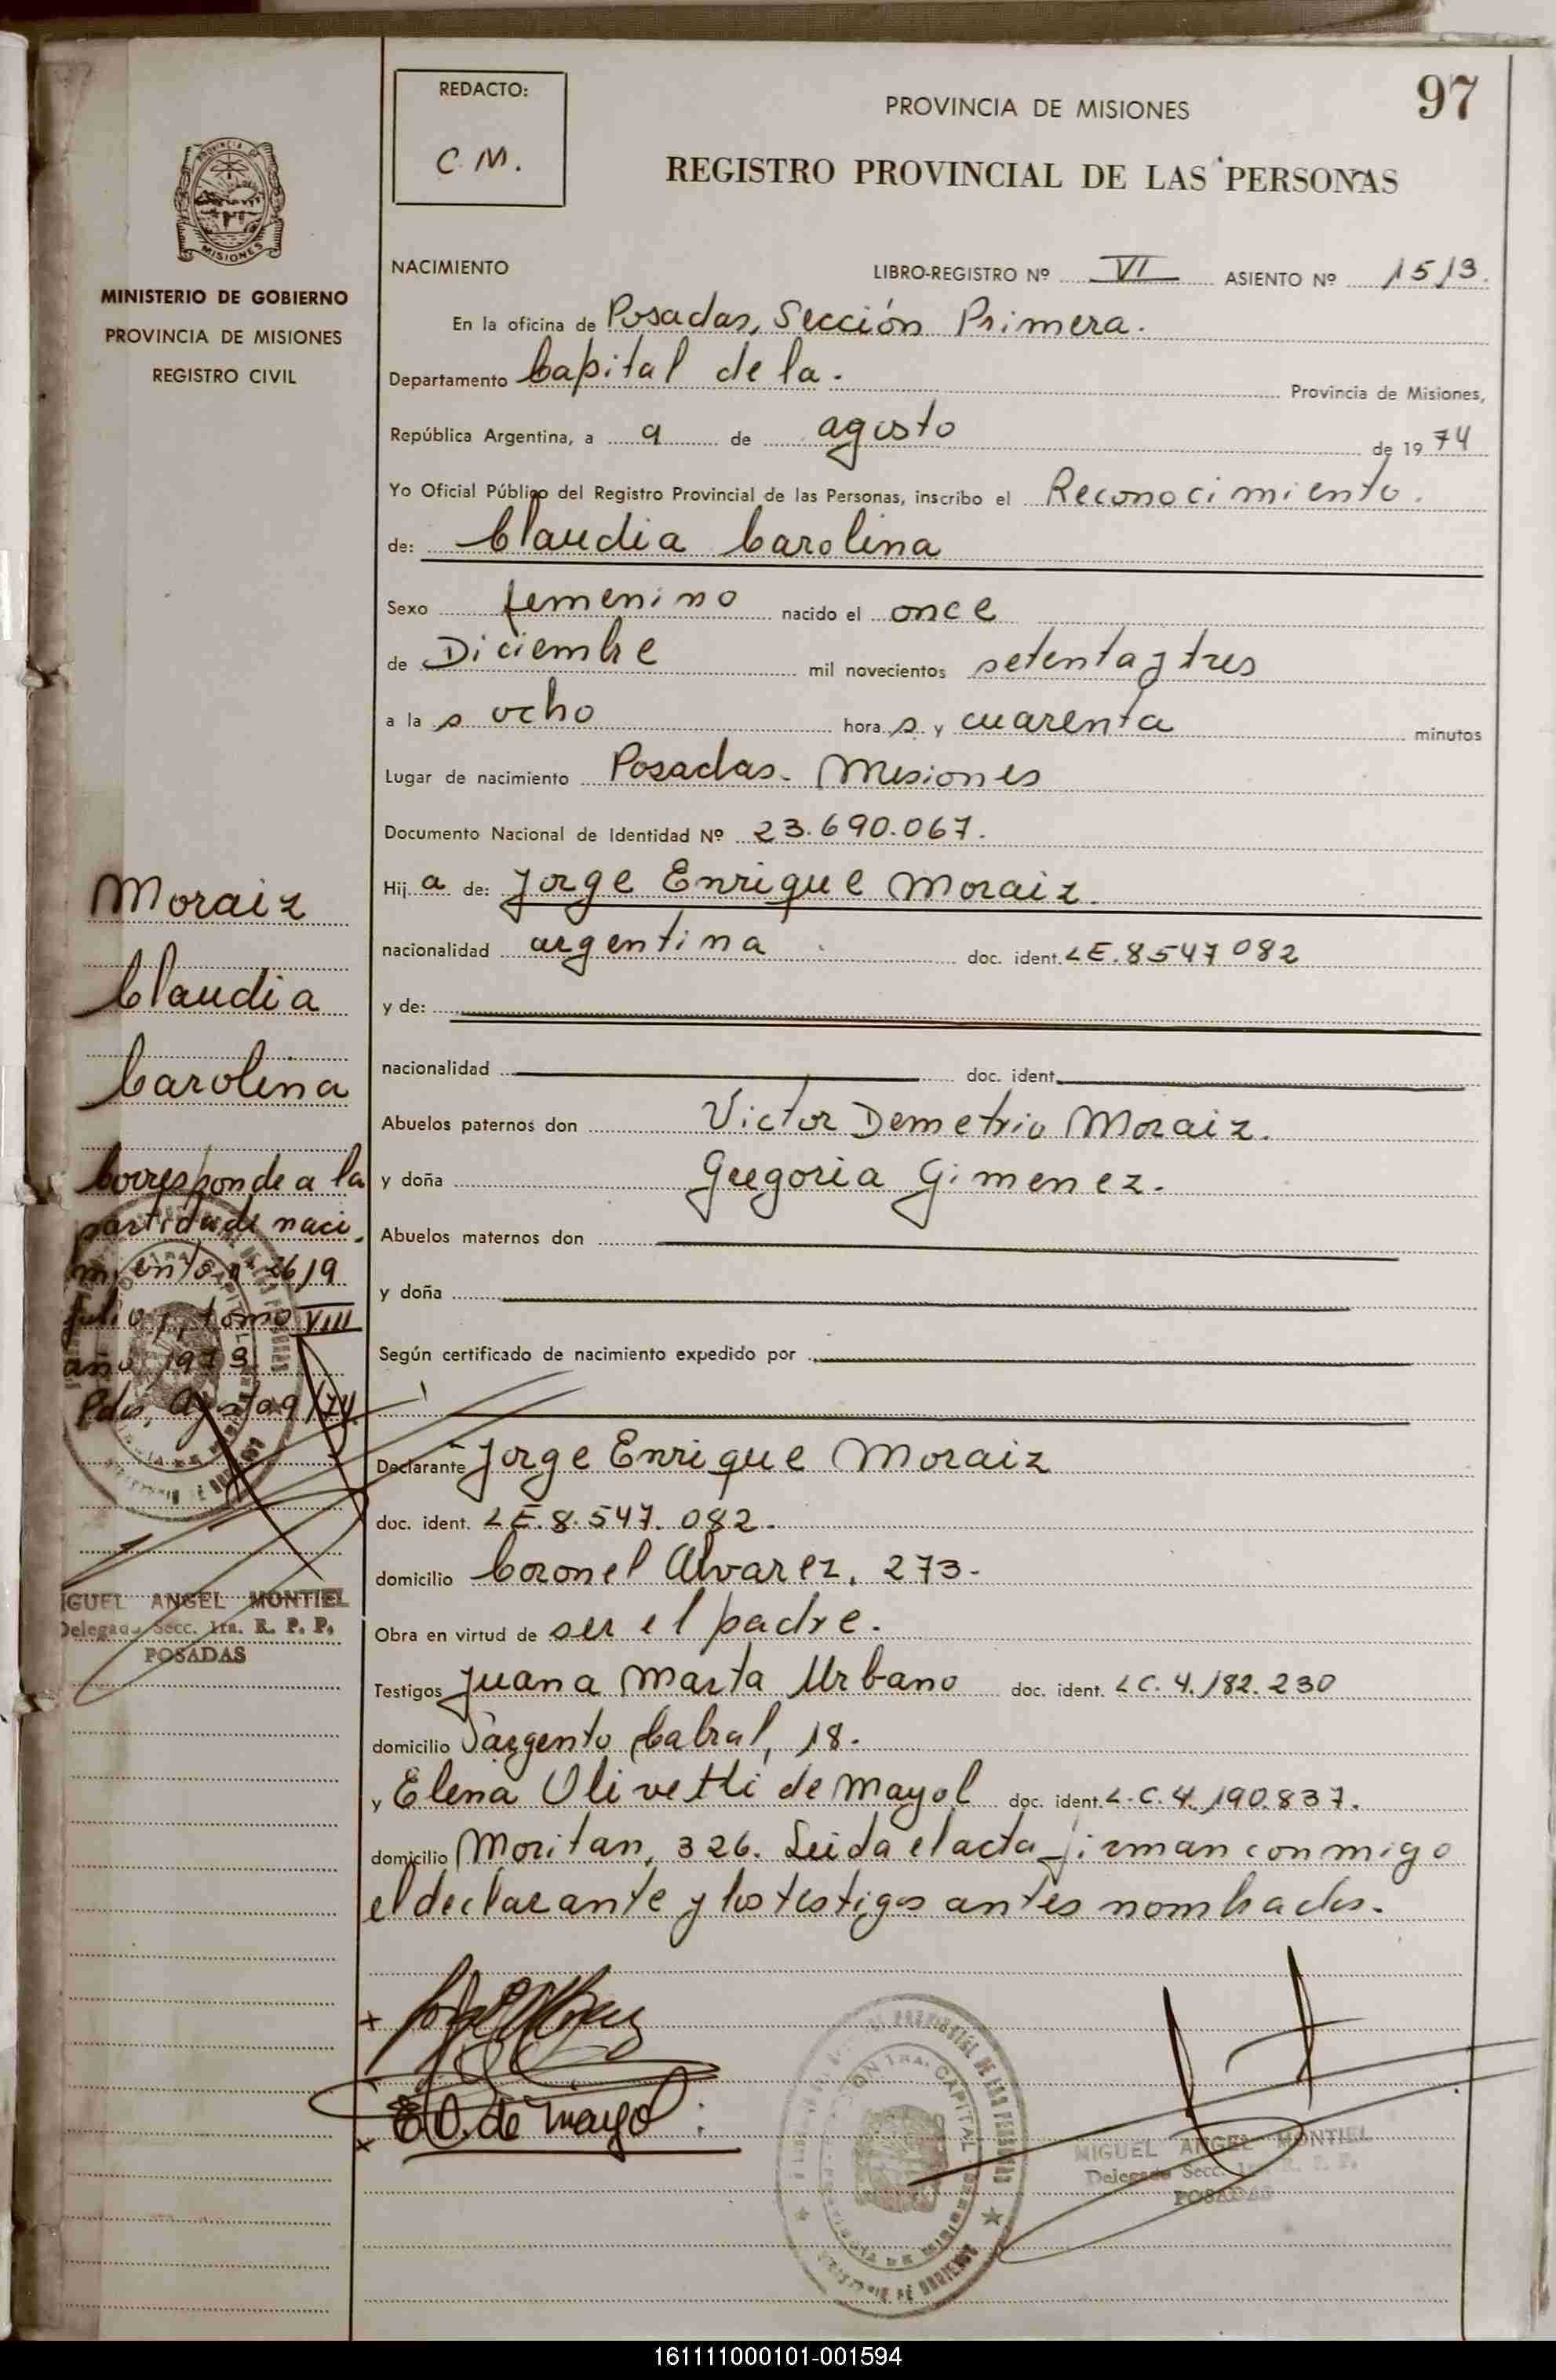 REDACTO:
C.M.
97
PROVINCIA DE MISIONES
REGISTRO PROVINCIAL DE LAS PERSONAS
MISIONES
MINISTERIO DE GOBIERNO
PROVINCIA DE MISIONES
REGISTRO CIVIL
NACIMIENTO LIBRO-REGISTRO Nº VI ASIENTO Nº 1513.
En la oficina de Posadas, Sección Primera.
Departamento Capital de la. Provincia de Misiones,
República Argentina, a 9 de agosto de 1974
Yo Oficial Público del Registro Provincial de las Personas, inscribo el Reconocimiento.
de: Claudia Carolina
Sexo femenino nacido el once
de Diciembre mil novecientos setenta y tres
a las ocho horas y cuarenta minutos
Lugar de nacimiento Posadas. Misiones
Documento Nacional de Identidad Nº 23.690.067.
Hija de: Jorge Enrique Moraiz.
nacionalidad argentina doc. ident. LE.8547082
y de:
nacionalidad doc. ident.
Abuelos paternos don Victor Demetrio Moraiz.
y doña Gregoria Gimenez.
Abuelos maternos don
y doña
Según certificado de nacimiento expedido por
Declarante Jorge Enrique Moraiz
doc. ident. LE.8.547.082.
domicilio Coronel Alvarez, 273-
Obra en virtud de ser el padre.
Testigos Juana Marta Urbano doc. ident. LC.4.182.230
domicilio Sargento Cabral, 18.
y Elena Olivetti de Mayol doc. ident. L.C.4.190.837.
domicilio Moritan, 326. Leida el acta firman conmigo
el declarante y los testigos antes nombrados.
Moraiz
Claudia
Carolina
Corresponde a la
partida de naci
miento nº 2619
folio, tomo VIII
año 1973.
Pdas, Agosto 9/74
IGUEL ANGEL MONTIEL
Delegado Secc. 1ra. R. P. P.
POSADAS
E O. de Mayol
MIGUEL ANGEL MONTIEL
Delegado Secc. 1ra. R. P. P.
POSADAS
161111000101-001594